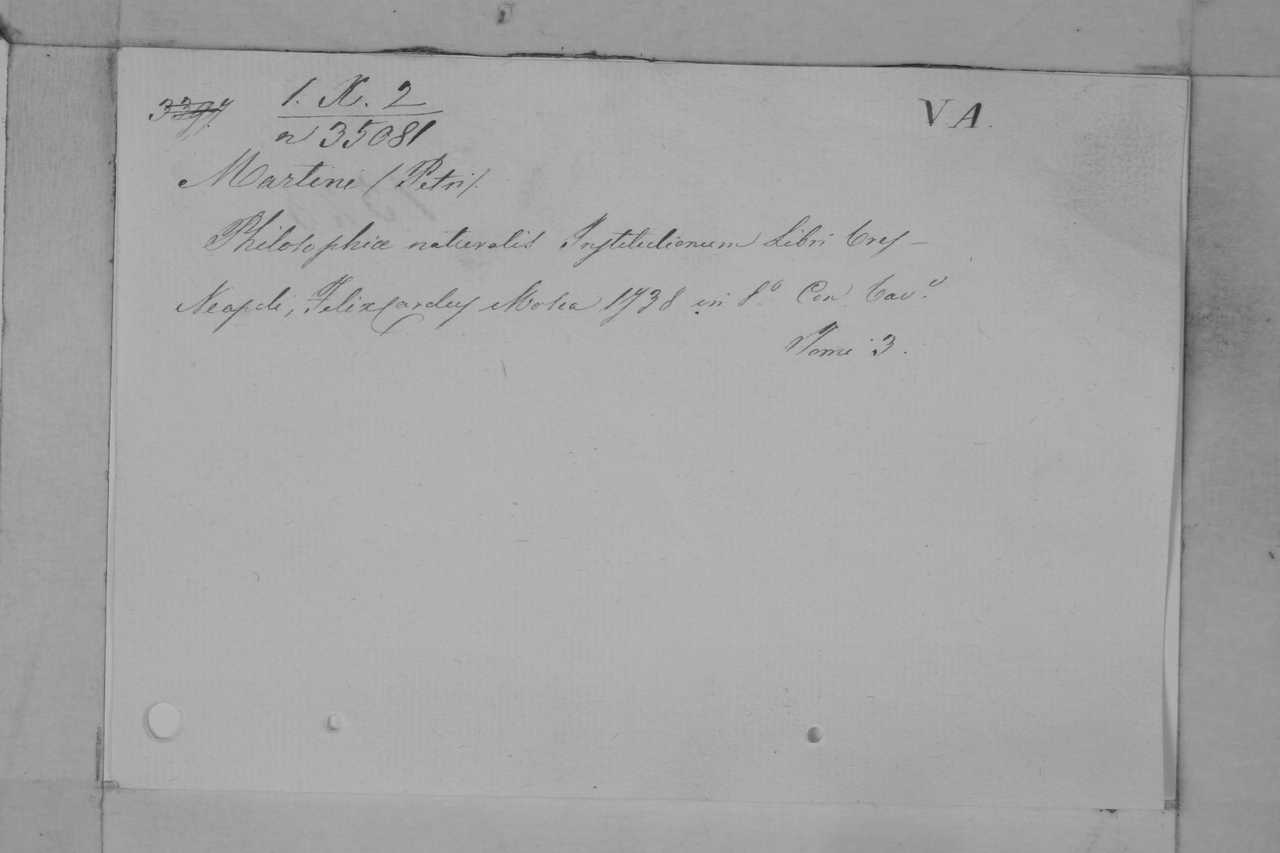 1. K. 2 V A.
n 35081
Martini (Petri).
Philosophiæ naturalis Institutionum Libri tres –
Neapoli, Felix Carolus Mosca 1738 in 8.° Con Tav.e
Tomi 3.